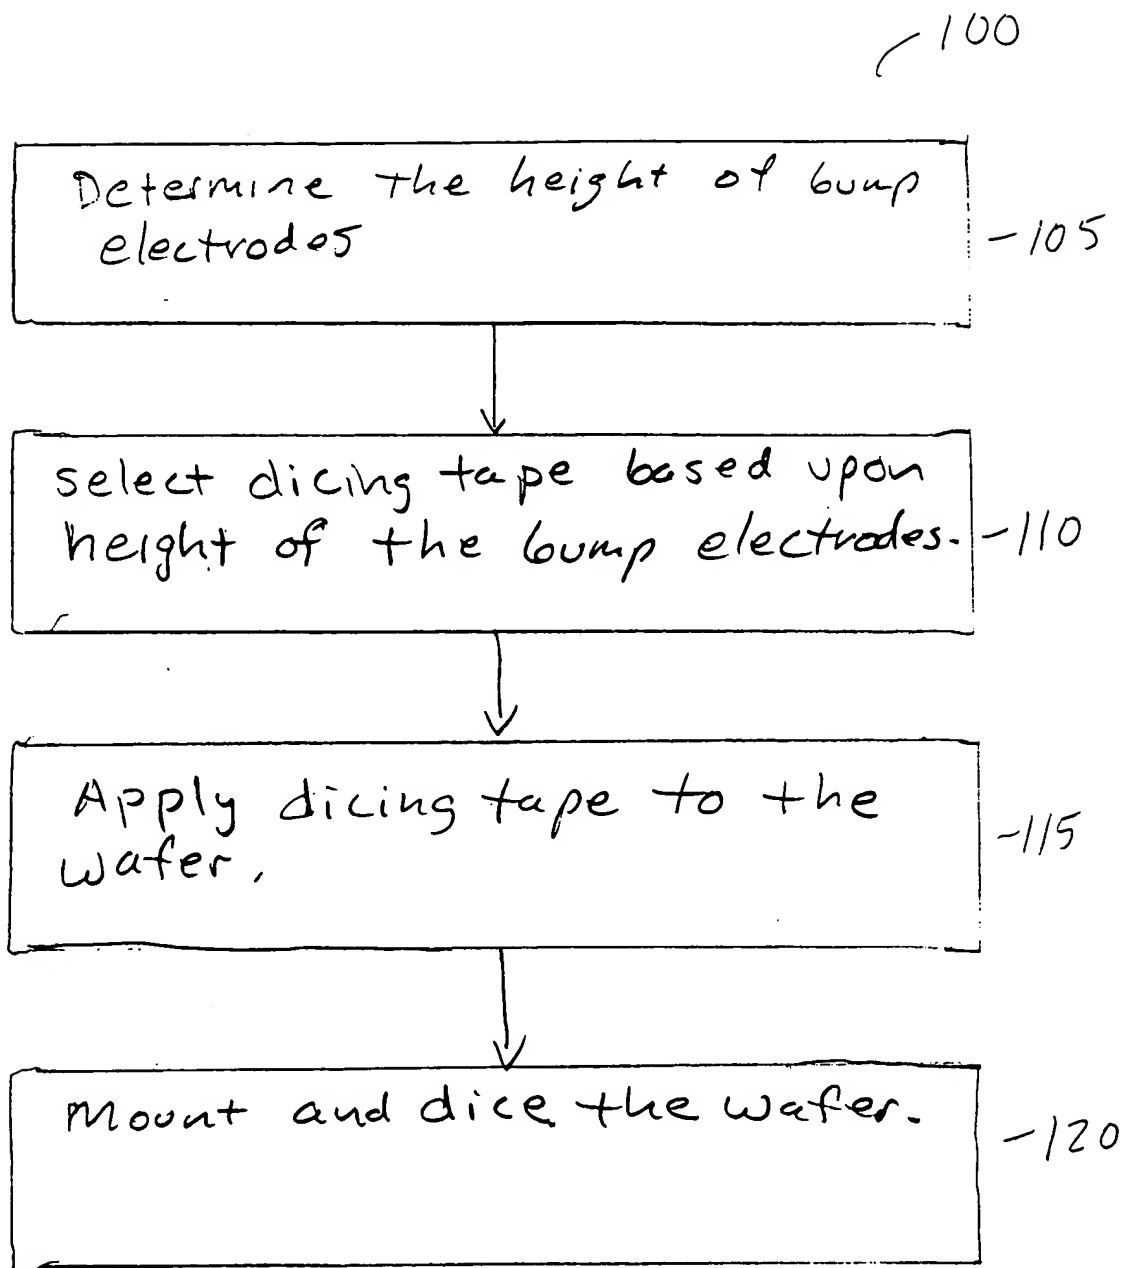 100
Determine the height of bump
electrodes
-105
select dicing tape based upon
height of the bump electrodes.
-110
Apply dicing tape to the
wafer.
-115
Mount and dice the wafer.
-120